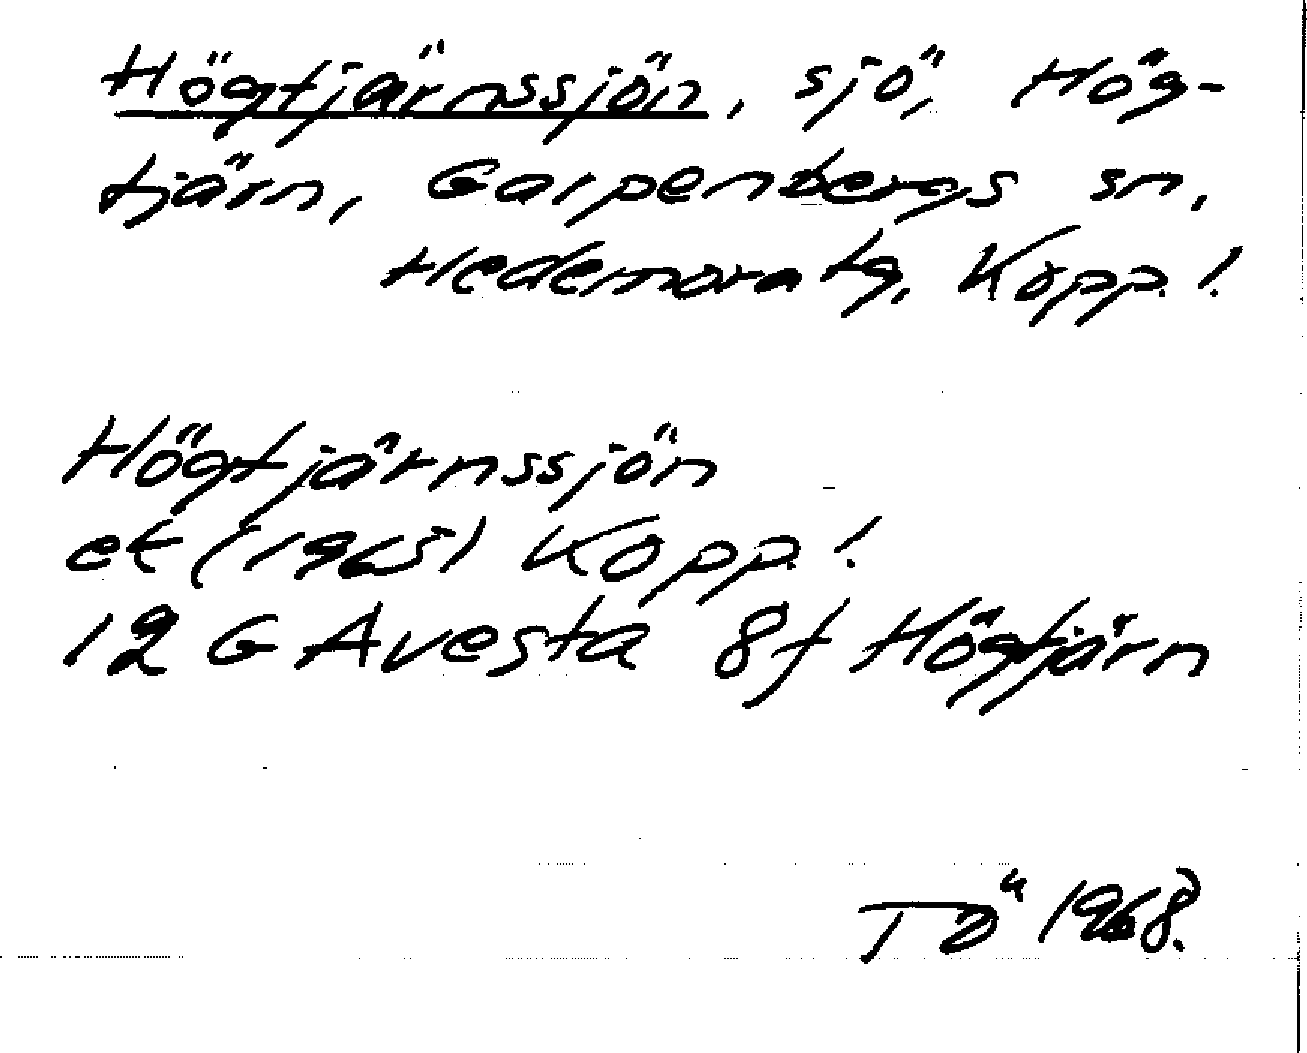 Högtjärnssjön, sjö, Hög-
tjärn, Garpenbergs sn,
Hedemora tg, Kopp. l.
Högtjärnssjön
ek (1965) Kopp. l.
12 G Avesta 8f Högtjärn
TÖ 1968.